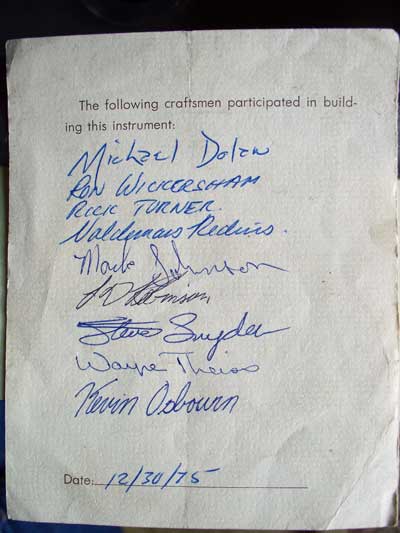 The following craftsmen participated in build-
ing this instrument:
Michael Dolan
RON WICKERSHAM
RICK TURNER.
Mark Johnson
Robinson
Steve Snyder
Wayne Theiss
Kevin Osbourn
Date: 12/30/75